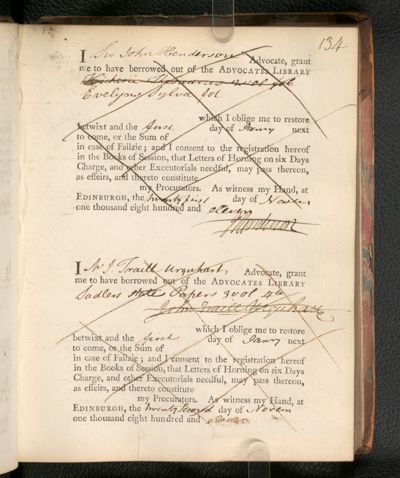 134.
I Sir John Henderson Advocate, grant
me to have borrowed out of the ADVOCATES LIBRARY
4to
Evelyns Sylva fol
which I oblige me to restore
betwixt and the first day of Janry next
to come, or the Sum of
in case of Failzie; and I consent to the registration hereof
in the Books of Session, that Letters of Horning on six Days
Charge, and other Executorials needful, may pass thereon,
as effeirs, and thereto constitute
my Procurators. As witness my Hand, at
EDINBURGH, the twenty first day of Novem
one thousand eight hundred and eleven
I Sir J Traill Urquhart Advocate, grant
me to have borrowed out of the ADVOCATES LIBRARY
Sadlers State Papers 3 vol 4to
John Traill Urquhart
which I oblige me to restore
betwixt and the first day of Janry next
to come, or the Sum of
in case of Failzie; and I consent to the registration hereof
in the Books of Session, that Letters of Horning on six Days
Charge, and other Executorials needful, may pass thereon,
as effeirs, and thereto constitute
my Procurators. As witness my Hand, at
EDINBURGH, the twenty second day of Novem
one thousand eight hundred and eleven